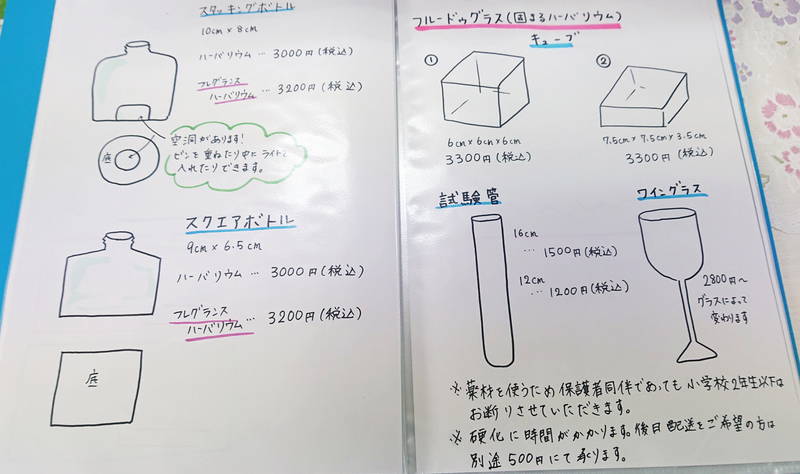 スタッキングボトル
10cm × 8cm
ハーバリウム … 3000円(税込)
フレグランス
ハーバリウム … 3200円(税込)
空洞があります!
ビンを重ねたり中にライトを
入れたりできます。
底
スクエアボトル
9cm × 6.5cm
ハーバリウム … 3000円(税込)
フレグランス
ハーバリウム … 3200円(税込)
底
フルードゥグラス(固まるハーバリウム)
キューブ
①
6cm × 6cm × 6cm
3300円(税込)
②
7.5cm × 7.5cm × 3.5cm
3300円(税込)
試験管
16cm
… 1500円(税込)
12cm
… 1200円(税込)
ワイングラス
2800円〜
グラスによって
変わります
※ 薬材を使うため保護者同伴であっても小学校2年生以下は
お断りさせていただきます。
※ 硬化に時間がかかります。後日配送をご希望の方は
別途500円にて承ります。